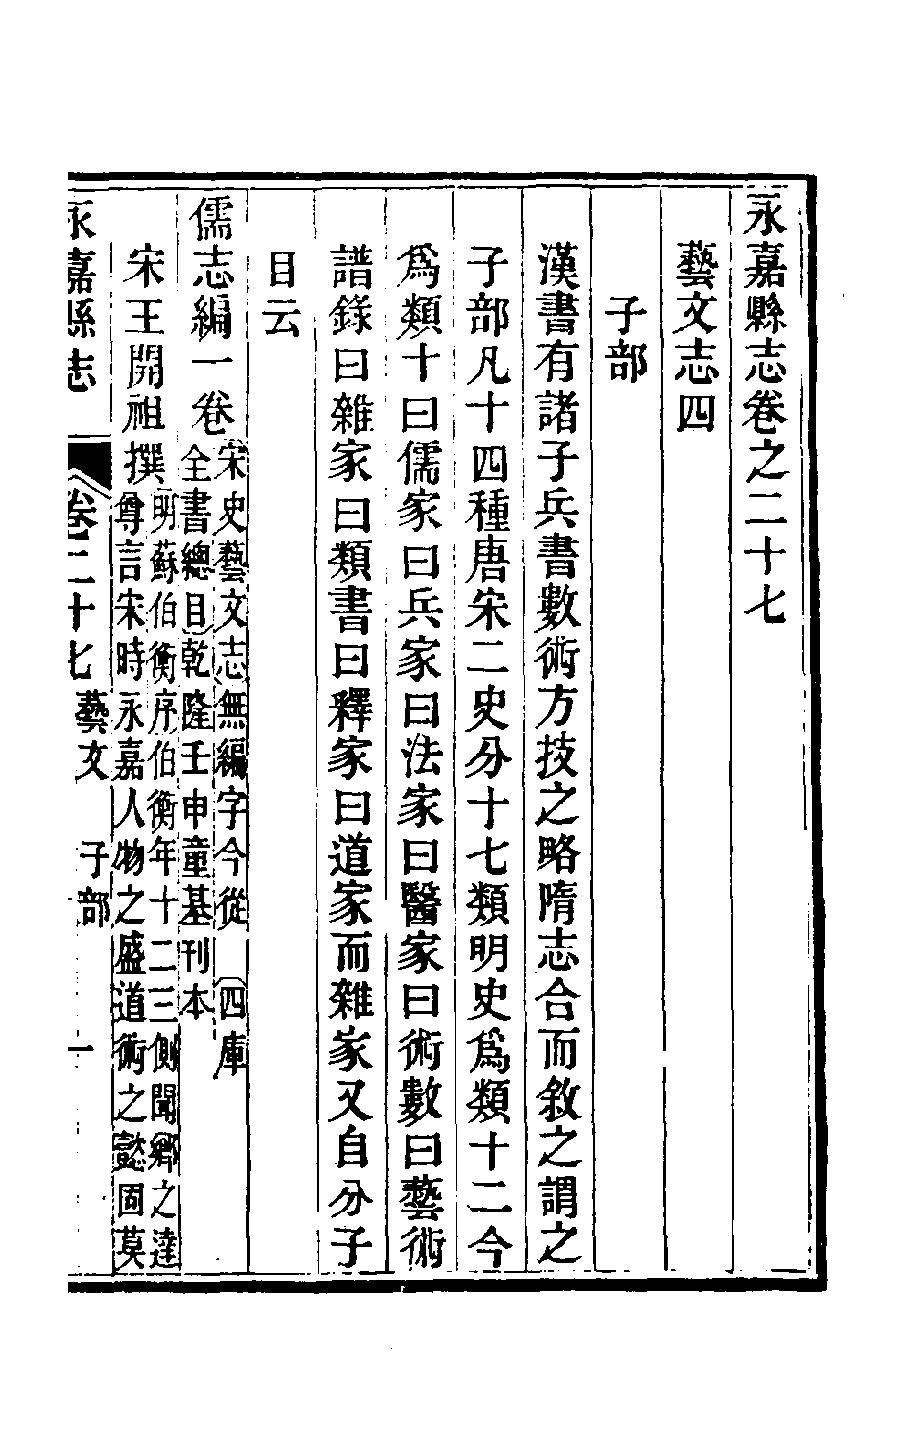 永嘉縣志卷之二十七
藝文志四
子部
漢書有諸子兵書數術方技之略隋志合而敘之謂之
子部凡十四種唐宋二史分十七類明史爲類十二今
爲類十曰儒家曰兵家曰法家曰醫家曰術數曰藝術
譜錄曰雜家曰類書曰釋家曰道家而雜家又自分子
目云
儒志編一卷
宋史藝文志無編字今從四庫
全書總目乾隆壬申童基刊本
宋王開祖撰
明蘇伯衡序伯衡年十二三側聞鄉之達
尊言宋時永嘉人物之盛道術之懿固莫
永嘉縣志
卷二十七
藝文
子部
一